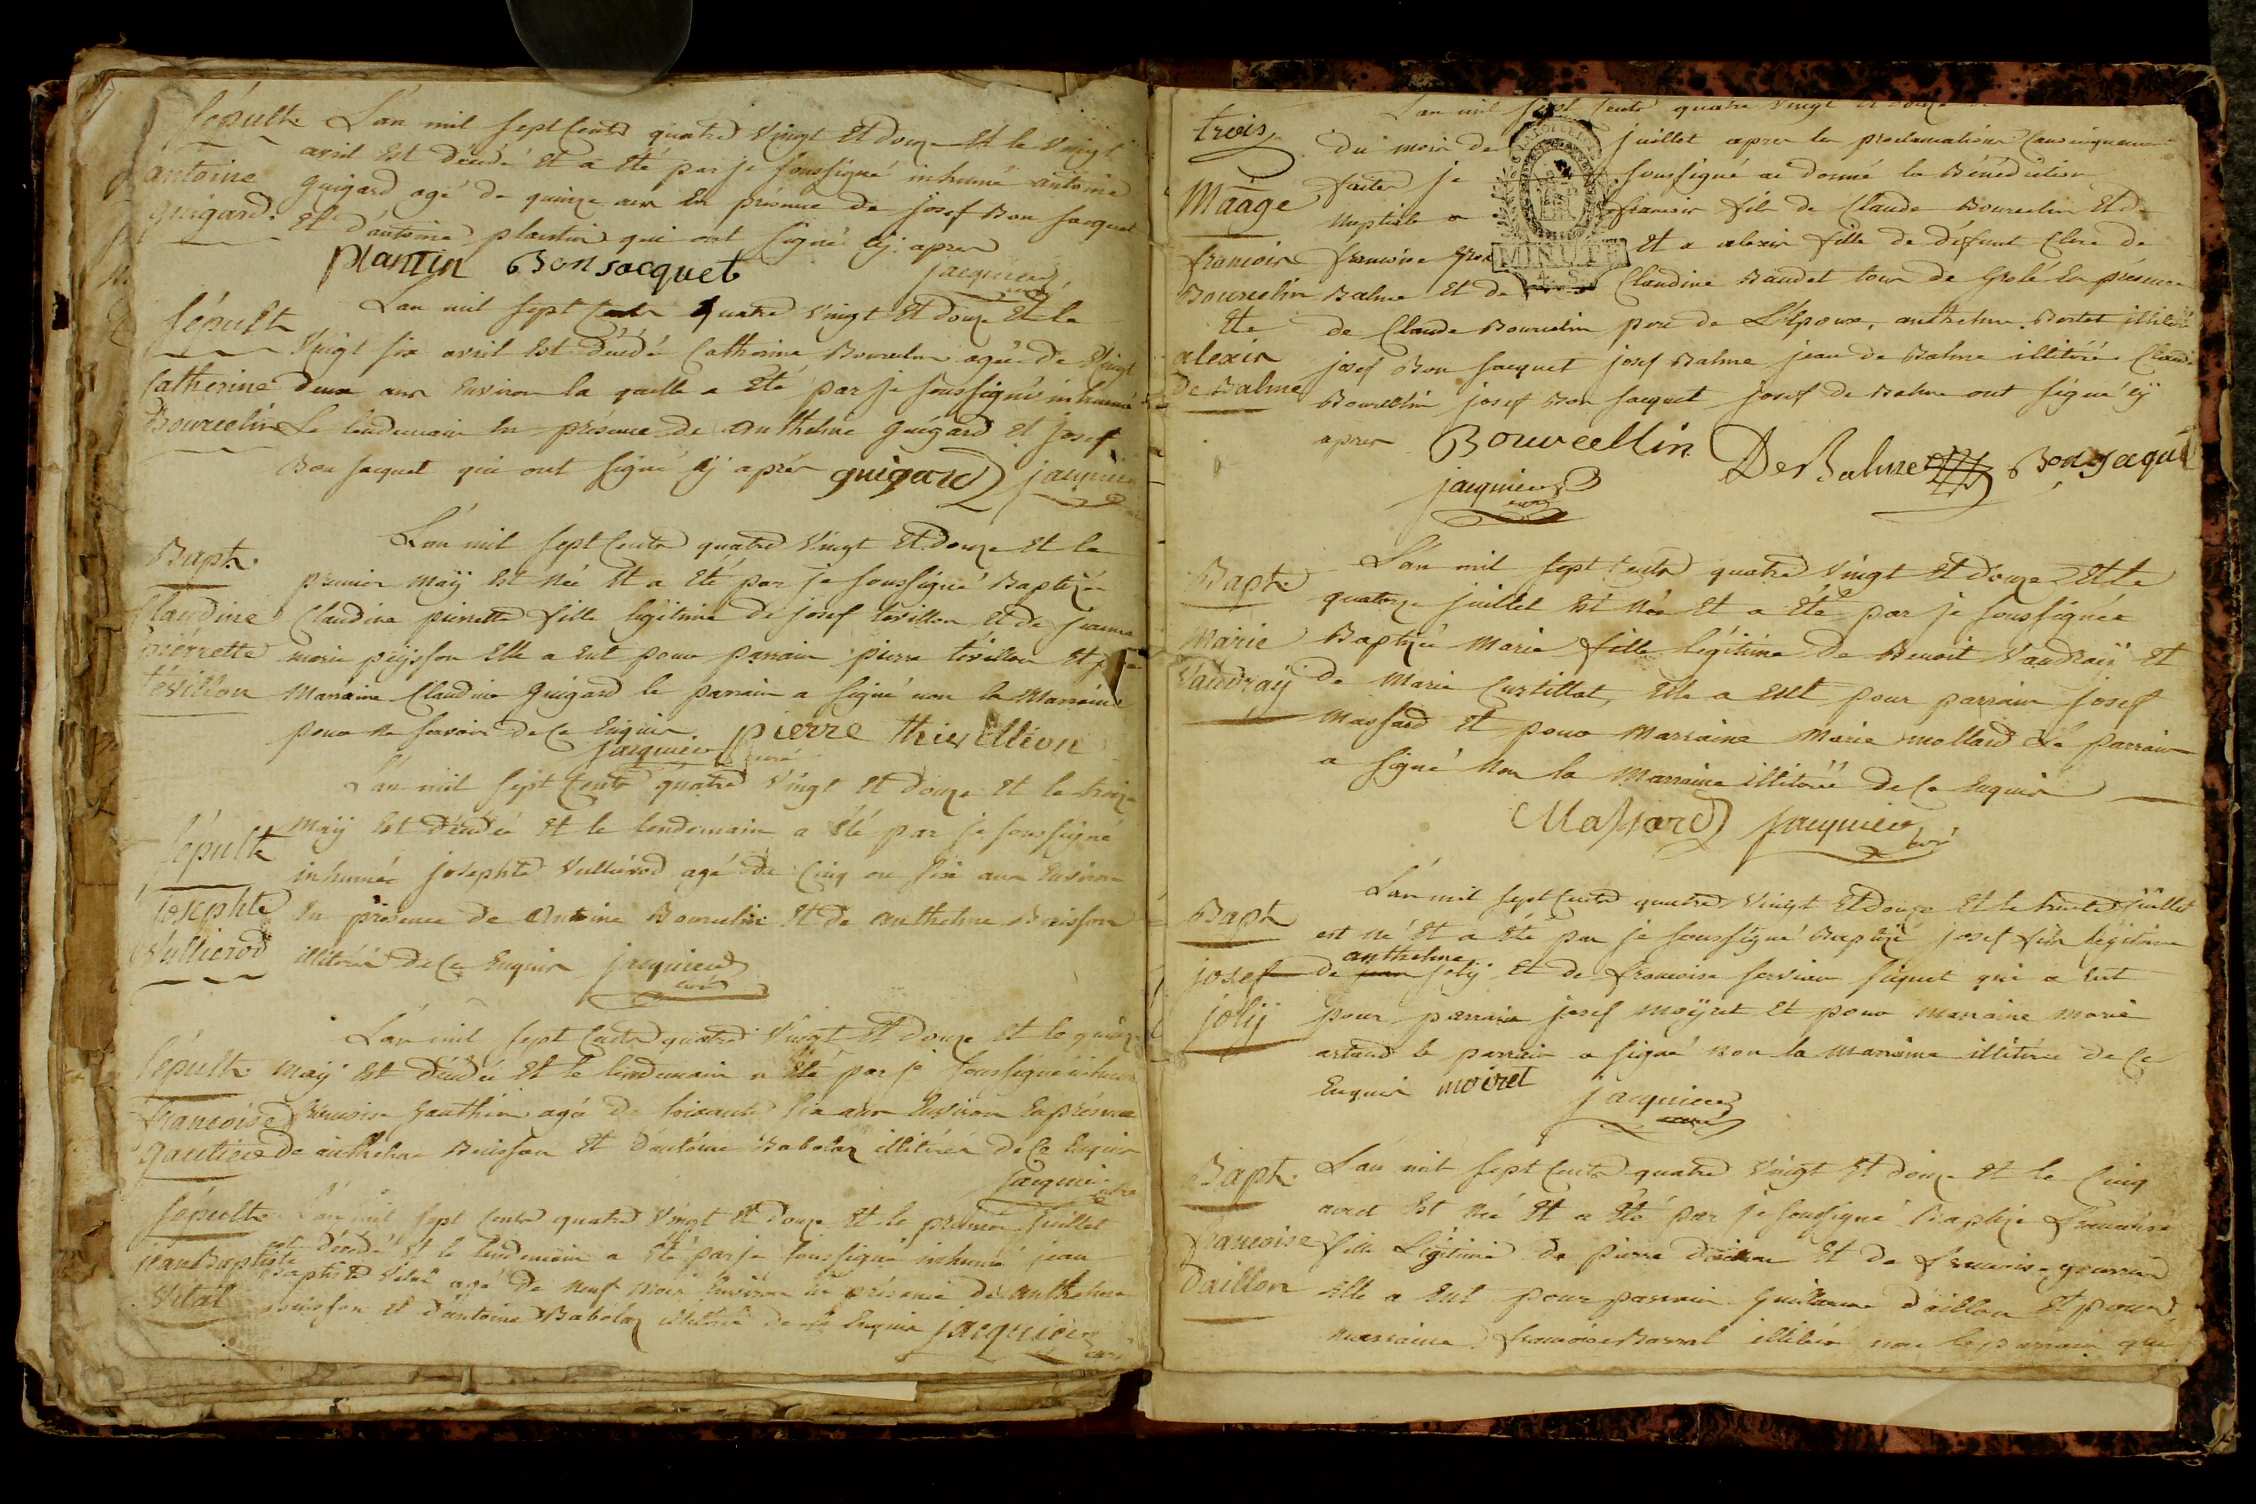 Sépult.
antoine
guigard.
L'an mil sept Cents quatre Vingt Et douze Et le Vingt
avril Est décédé Et a été par je soussigné inhumé antoine
guigard agé de quinze ans En présence de josef Bon jacquet
Et d'antoine plantin qui ont signé cÿ apres
plantin Bonjacquet
jacquier curé
Sépult
Catherine
Bourcelin
L'an mil sept Cents quatre Vingt Et douze Et le
Vingt six avril Est décédé Catherine Bourcelin agée de Vingt
deux ans Environ la quelle a été par je soussigné inhumé
Le lendemain En présence de anthelme guigard Et josef
Bon jacquet qui ont signé cÿ après guigard jacquier
Bapt.
Claudine
pierrette
tévillon
L'an mil sept Cents quatre Vingt Et douze Et le
premier maÿ Est née Et a été par je soussigné Baptizée
Claudine pierrette fille légitime de josef tévillon Et de jeanne
marie peÿsson Elle a Eut pour parrain pierre tévillon Et pour
Marraine Claudine Guigard le parrain a signé non la Marraine
pour ne savoir de Ce Enquis
jacquier curé pierre thievillion
Sépult
josephte
Vullierod
L'an mil sept Cents quatre Vingt Et douze Et le treize
maÿ Est décédée Et le lendemain a été par je soussigné
inhumée josephte Vullierod agé de Cinq ou six ans Environ
En présence de Antoine Bourcelin Et de anthelme Buisson
illitérés de Ce Enquis jacquier curé
Sépult.
francoise
gautier
L'an mil sept Cents quatre Vingt Et douze Et le quinze
maÿ Est décédée Et le lendemain a été par je soussigné inhumé
francoise gauthier agé de soixante six ans Environ En présence
de anthelme Buisson Et d'antoine Babolaz illitérés de Ce Enquis
jacquier curé
Sépult.
jean Baptiste
Vital
L'an mil sept Cents quatre Vingt Et douze Et le premier juillet
est décédé Et le lendemain a été par je soussigné inhumé jean
Baptiste Vital agé de neuf mois Environ En présence de anthelme
Buisson Et d'antoine Babolaz illitérés de Ce Enquis jacquier curé
trois
Máage
francois
Bourcelin
Et a
alexis
De Balme
L'an mil sept Cents quatre Vingt Et douze
du mois de juillet apres les proclamations Canoniquement
faites je soussigné ai donné la Bénédiction
Nuptiale a francois fils de Claude Bourcelin Et de
francoise Et a alexis fille de défunt Claude
Balme Et de Claudine Baudet tous de Grolé En présence
de Claude Bourcelin pere de L'époux, anthelme Bertet illitéré
josef Bon jacquet josef Balme jean de Balme illitéré Claude
Bourcellin josef Bon jacquet josef de Balme ont signé cÿ
apres Bourcellin DeBalme Bonjacquet
jacquier curé
MINUTE
4. S.
Bapt.
Marie
Vaudraÿ
L'an mil sept Cents quatre Vingt Et douze Et le
quatorze juillet Est née Et a été par je soussignée
Baptizée Marie fille légitime de Benoit Vaudraÿ Et
de Marie Curtillat, Elle a Eut pour parrain josef
Massard Et pour Marraine Marie mollard Le parrain
a signé Non la Marraine illitéré de Ce Enquis
Massard jacquier curé
Bapt
josef
jolÿ
L'an mil sept Cents quatre Vingt Et douze Et le trente juillet
est né Et a été par je soussigné Baptizé josef fils légitime
anthelme
de jean jolÿ Et de francoise servian siquet qui a Eut
pour parrain josef moÿret Et pour marraine marie
artaud le parrain a signé non la marraine illitérée de Ce
Enquis moiret jacquier curé
Bapt.
francoise
Daillon
L'an mil sept Cents quatre Vingt Et douze Et le Cinq
aout Est née Et a été par je soussigné Baptizé francoise
fille Légitime de pierre Daillon Et de francoise
Elle a Eut pour parrain Guillaume d'aillon Et pour
marraine francoise Barral illitéré non le parrain qui